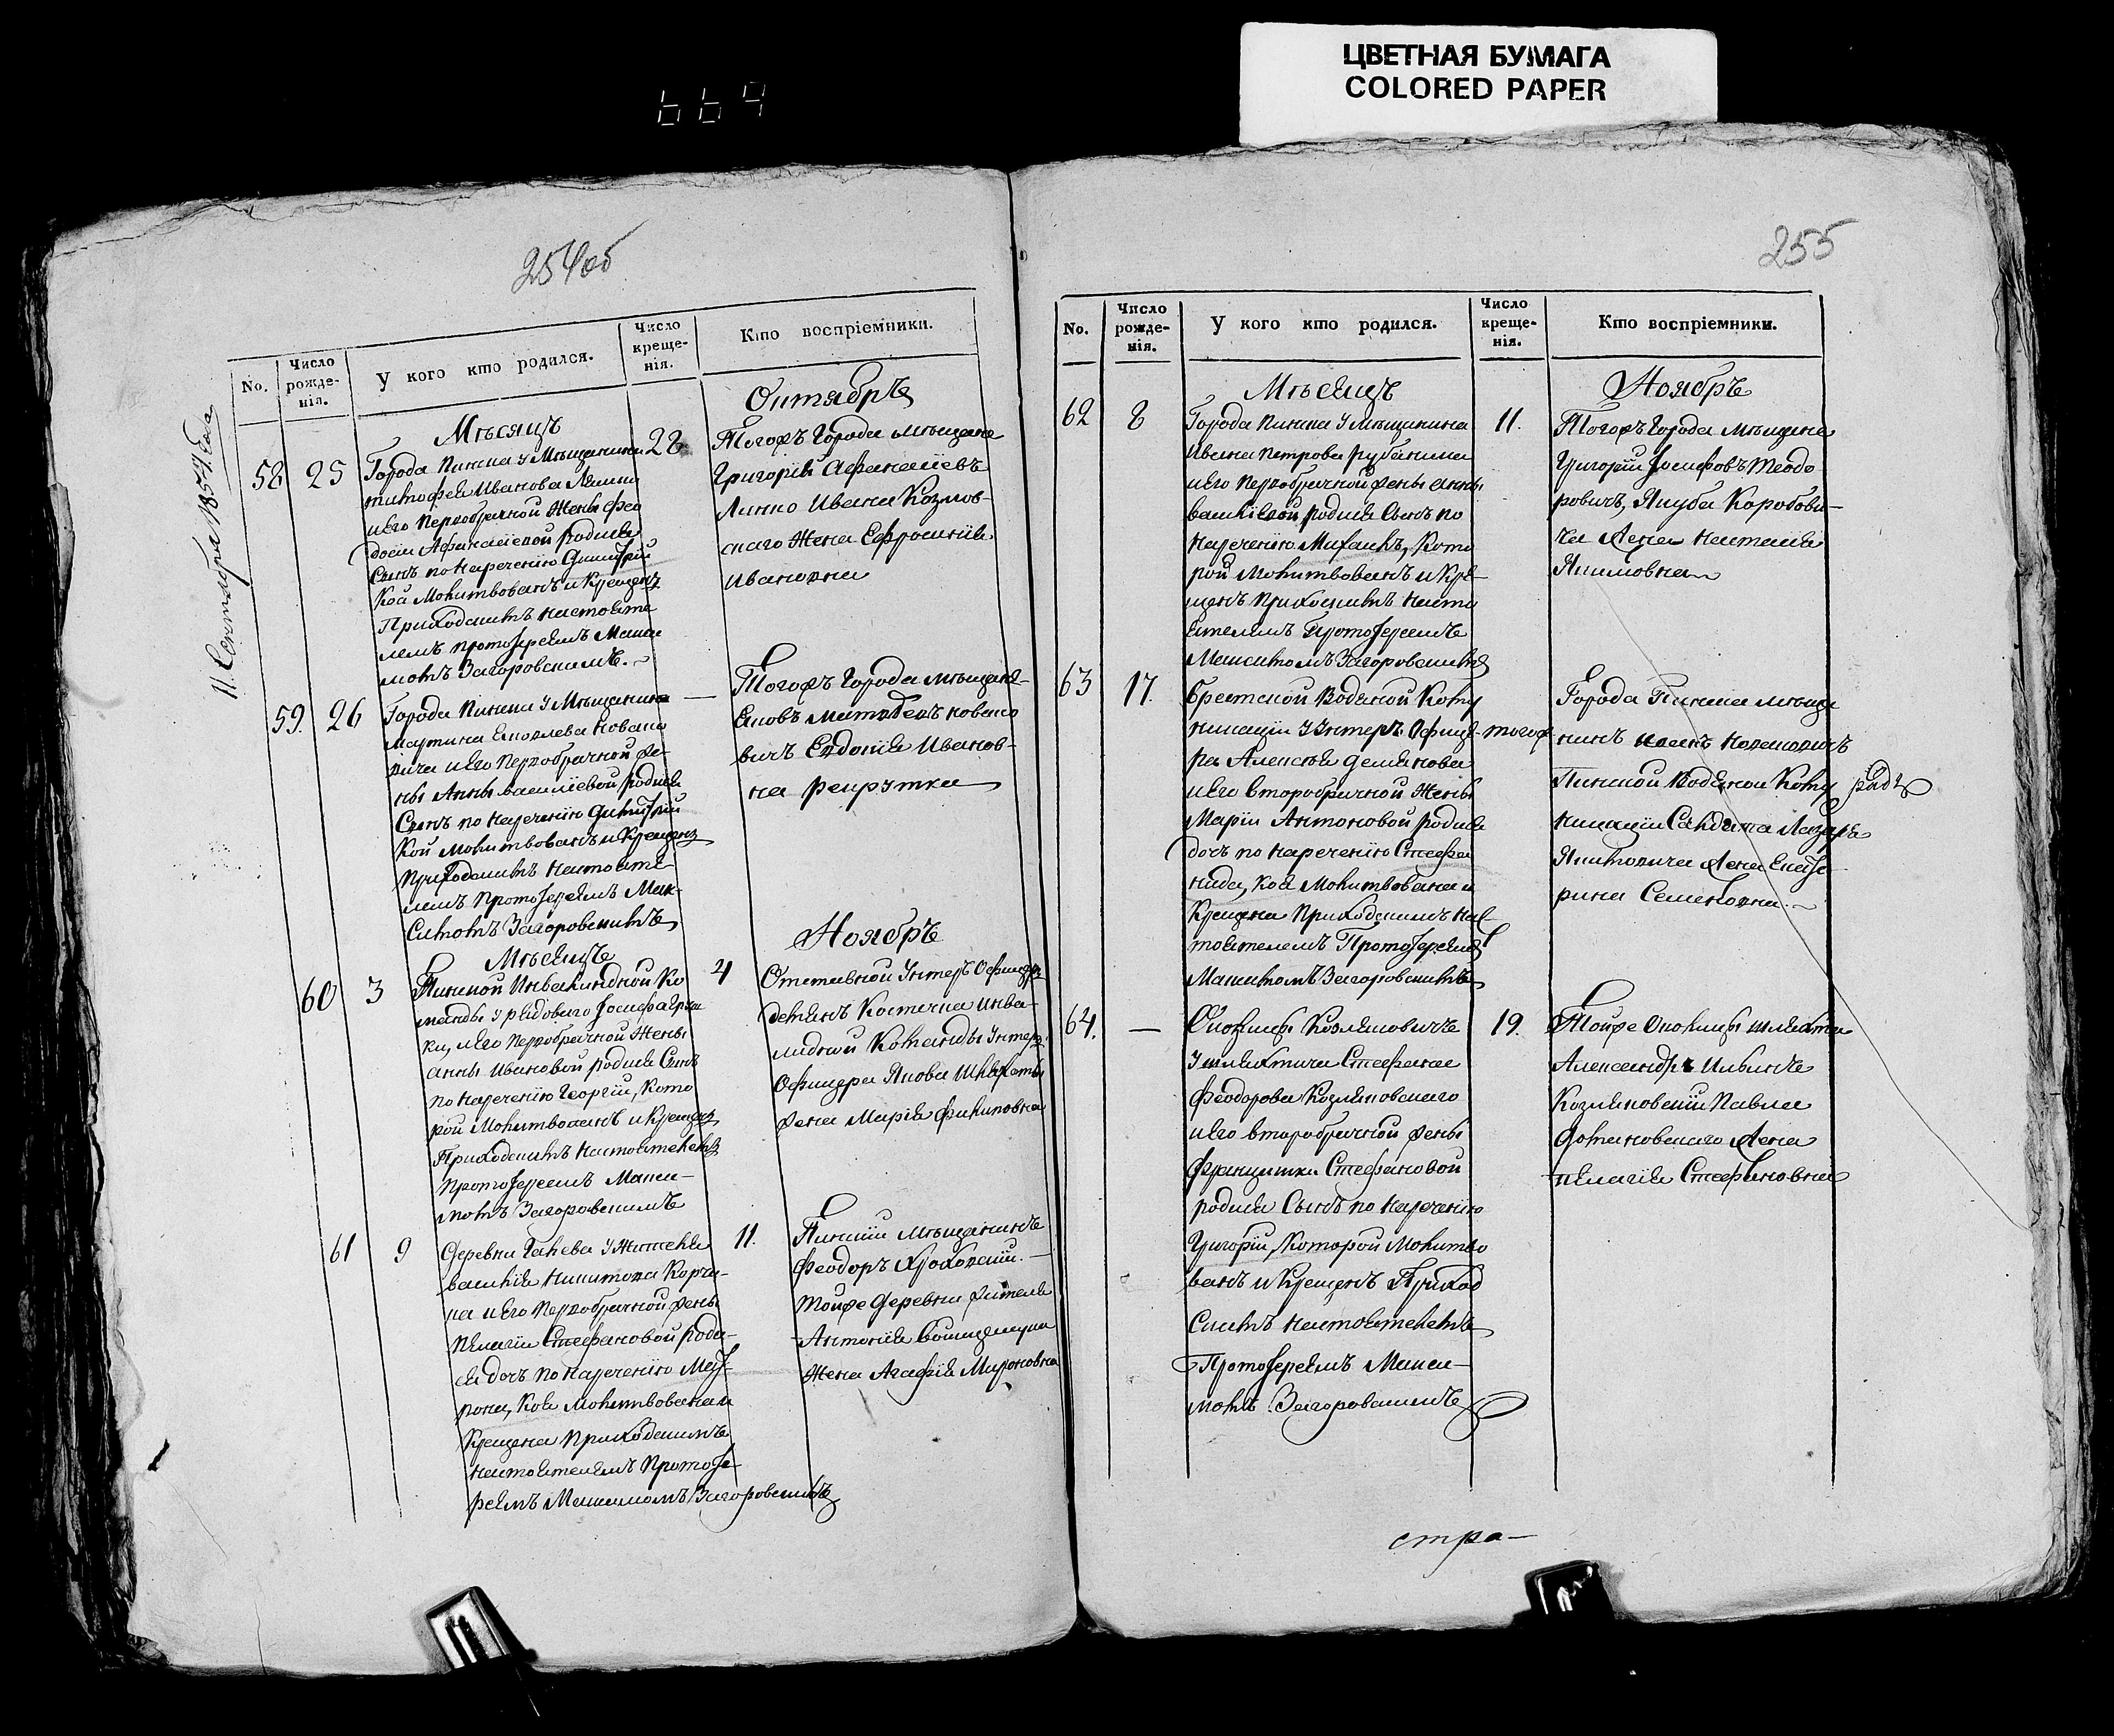 ЦВЕТНАЯ БУМАГА
COLORED PAPER
664
254об
11. Сентября 1854. Года
No.
Число рожде-нія.
У кого кто родился.
Число креще-нія.
Кто воспріемники.
Мѣсяцъ
Октябрь
58
25
Города Пинска у Мѣщанина
Тимофея Иванова
и его первобрачной жены Фео
досіи Афанасіевой родился
Сынъ по нареченію Димитрій
Кой Молитвованъ и Крещенъ
Приходскимъ настояте
лемъ протоІереемъ Макси
момъ Загоровскимъ.
28
Тогожъ Города мѣщане
Григорій Афанасіевъ
Линко Ивана Козлов-
скаго Жена Ефросинія
Ивановна
59.
26
Города Пинска у Мѣщанина
Мартина Яковлева Ковале
вича и его первобрачной же-
ны Анны Василіевой родился
Сынъ по нареченію Димитрій
Кой молитвованъ и Крещенъ
Приходскимъ Настояте-
лемъ ПротоІереемъ Мак-
симомъ Загоровскимъ
—
Тогожъ Города мѣщане-
вичъ Евдокія Иванов-
на рекрутка
Мѣсяцъ
Ноябрь
60
3
Пинской Инвалидной Ко
манды у рядоваго Іосифа
ки, и его первобрачной Жены
Анны Ивановой родился Сынъ
по нареченію Георгій, Кото
рой Молитвованъ и Крещенъ
Приходскимъ Настоятелемъ
ПротоІереемъ Макси-
момъ Загоровскимъ
4
Отставной Унтеръ Офицеръ
Костючка Инва-
лидной Команды Унтеръ
Офицера Якова
жена Марія Филиповна
61
9
Деревни Галева у Жителя
Василія Никитова Корча-
ка и его первобрачной жены
Пелагіи Стефановой роди-
ся дочь по нареченію Мат-
рона, Коя Молитвована и
Крещена Приходскимъ
Настоятелемъ ПротоІе-
реемъ Максимомъ Загоровскимъ
11.
Пинскій Мѣщанинъ
Феодоръ
Тойже Деревни жителя
Антонія
Жена Агафія Мироновна
255
No.
Число рожде-нія.
У кого кто родился.
Число креще-нія.
Кто воспріемники.
Мѣсяцъ
Ноябрь
62
8
Города Пинска у Мѣщанина
Ивана Петрова Рубаника
и его первобрачной жены Анны
Василіевой родился Сынъ по
нареченію Михаилъ, Кото
рой Молитвованъ и Кре-
щенъ Приходскимъ Насто
ятелемъ ПротоІереемъ
Максимомъ Загоровскимъ
11.
Тогожъ Города Мѣщане
Григорій Іосифовъ Теодо
ровичъ, Якуба Коробови-
ча Жена Наталія
Якимовна
63
17.
Брестской Водяной Кому
никаціи у Унтеръ Офице-
ра Алексѣя Демянова
и его второбрачной Жены
Маріи Антоновой родися
дочь по нареченію Стефа
нида, Коя Молитвована и
Крещена Приходскимъ Нас-
тоятелемъ ПротоІереемъ
Максимомъ Загоровскимъ
тогож
Города Пинска мѣща
нинъ
Пинской Водяной Кому
рядо
никаціи Солдата Лазаря
Жена Екате
рина Семеновна.
64.
—
Околицы Козляковичъ
у шляхтича Стефана
Феодорова Козляковскаго
и его второбрачной жены
Францишки Стефановой
родился Сынъ по нареченію
Григорій, Которой Молитво
ванъ и Крещенъ Приход
скимъ настоятелемъ
ПротоІереемъ Макси-
момъ Загоровскимъ
19.
Тойже Околицы шляхта
Александръ Ильинъ
Козляковскій Павла
Домановскаго Жена
Пелагія Стефановна
стра-